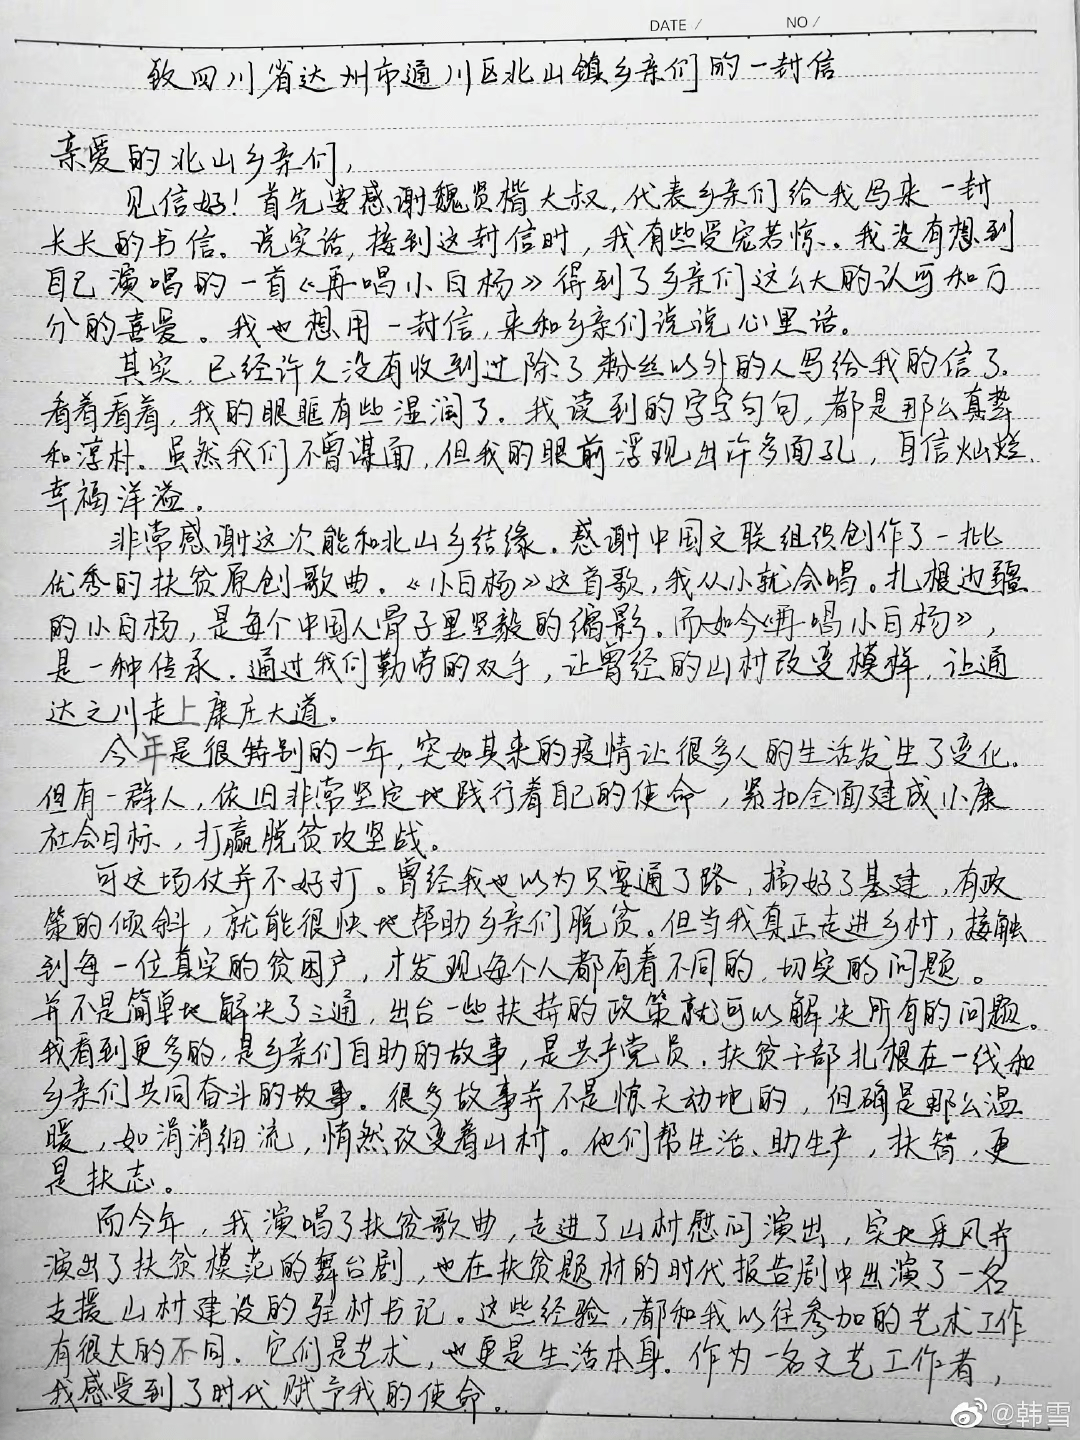 DATE / NO /
致四川省达州市通川区北山镇乡亲们的一封信
亲爱的北山乡亲们,
见信好!首先要感谢魏贤楷大叔,代表乡亲们给我写来一封
长长的书信。说实话,接到这封信时,我有些受宠若惊。我没有想到
自己演唱的一首《再唱小白杨》得到了乡亲们这么大的认可和万
分的喜爱。我也想用一封信,来和乡亲们说说心里话。
其实,已经许久没有收到过除了粉丝以外的人写给我的信了。
看着看着,我的眼眶有些湿润了。我读到的字字句句,都是那么真挚
和淳朴。虽然我们不曾谋面,但我的眼前浮现出许多面孔,自信灿烂,
幸福洋溢。
非常感谢这次能和北山乡结缘。感谢中国文联组织创作了一批
优秀的扶贫原创歌曲。《小白杨》这首歌,我从小就会唱。扎根边疆
的小白杨,是每个中国人骨子里坚毅的缩影。而如今《再唱小白杨》,
是一种传承。通过我们勤劳的双手,让曾经的山村改变模样,让通
达之川走上康庄大道。
今年是很特别的一年,突如其来的疫情让很多人的生活发生了变化。
但有一群人,依旧非常坚定地践行着自己的使命,紧扣全面建成小康
社会目标,打赢脱贫攻坚战。
可这场仗并不好打。曾经我也以为只要通了路,搞好了基建,有政
策的倾斜,就能很快地帮助乡亲们脱贫。但当我真正走进乡村,接触
到每一位真实的贫困户,才发现每个人都有着不同的,切实的问题。
并不是简单地解决了三通,出台一些扶持的政策就可以解决所有的问题。
我看到更多的,是乡亲们自助的故事,是共产党员,扶贫干部扎根在一线和
乡亲们共同奋斗的故事。很多故事并不是惊天动地的,但确是那么温
暖,如涓涓细流,悄然改变着山村。他们帮生活、助生产,扶智,更
是扶志。
而今年,我演唱了扶贫歌曲,走进了山村慰问演出,实地采风并
演出了扶贫模范的舞台剧,也在扶贫题材的时代报告剧中出演了一名
支援山村建设的驻村书记。这些经验,都和我以往参加的艺术工作
有很大的不同。它们是艺术,也更是生活本身。作为一名文艺工作者,
我感受到了时代赋予我的使命。
@韩雪